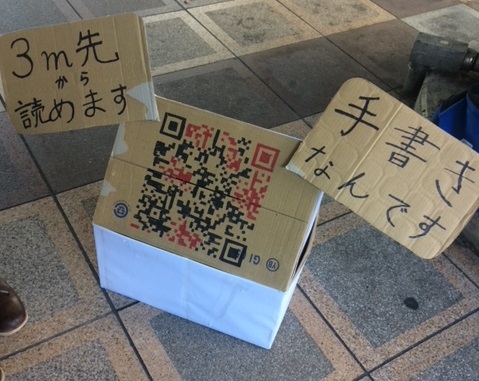 3m先
から
読めます
手書き
なんです